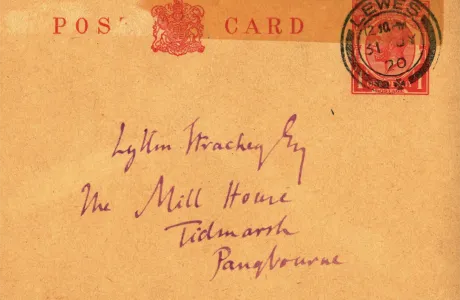 POST CARD
LEWES
31
20
Lytton Strachey Esq
The Mill House
Tidmarsh
Pangbourne